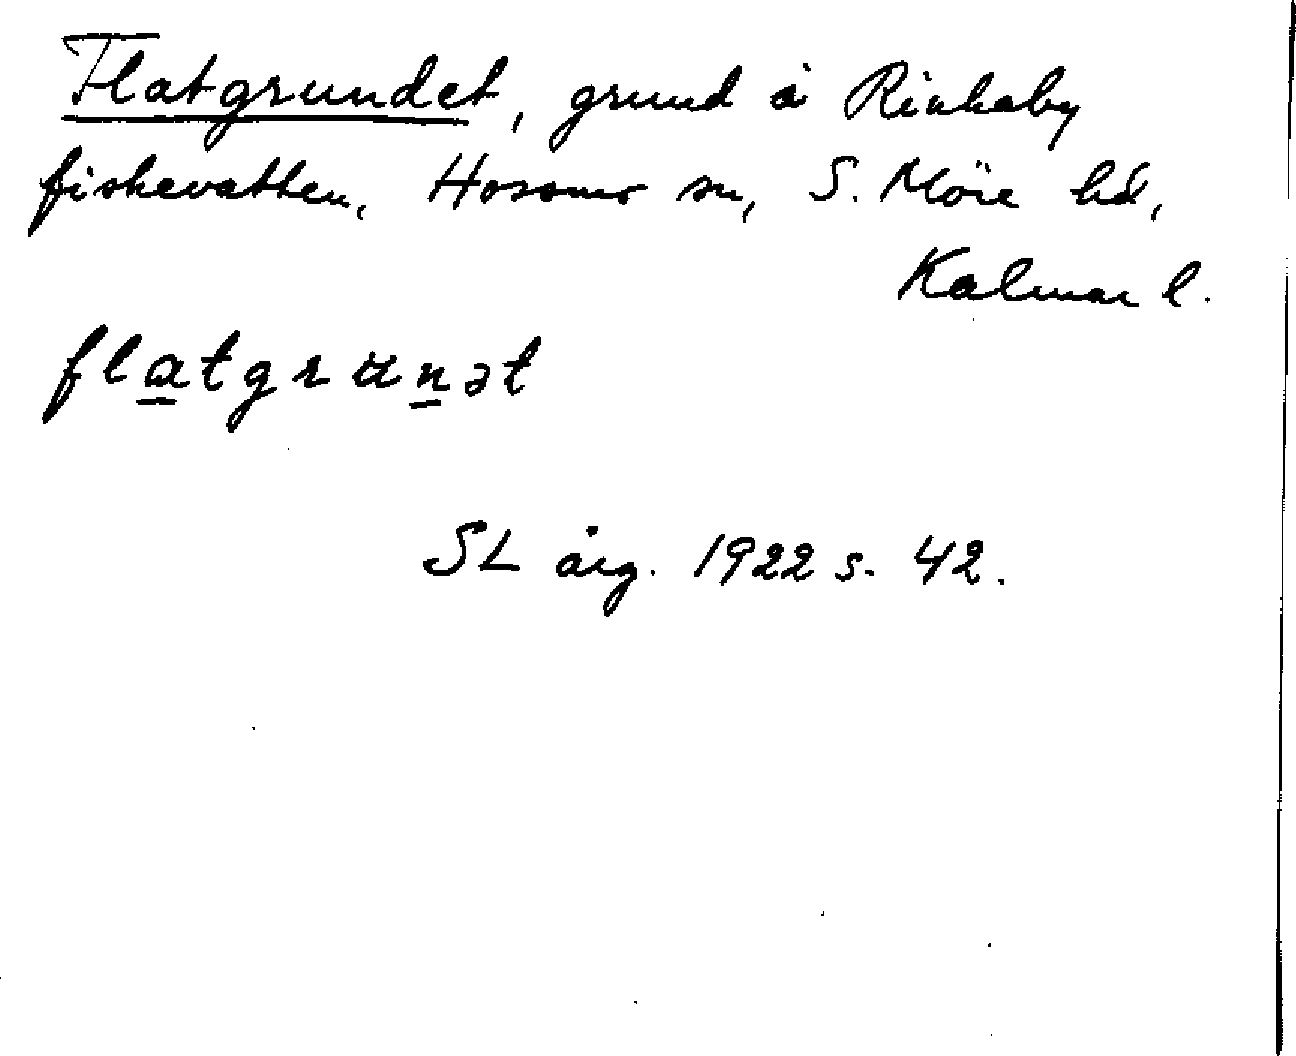 Flatgrundet, grund å Rinkaby
fiskevatten, Hossmo sn, S. Möre hd,
Kalmar l.
flatgrunət
SL årg. 1922 s. 42.